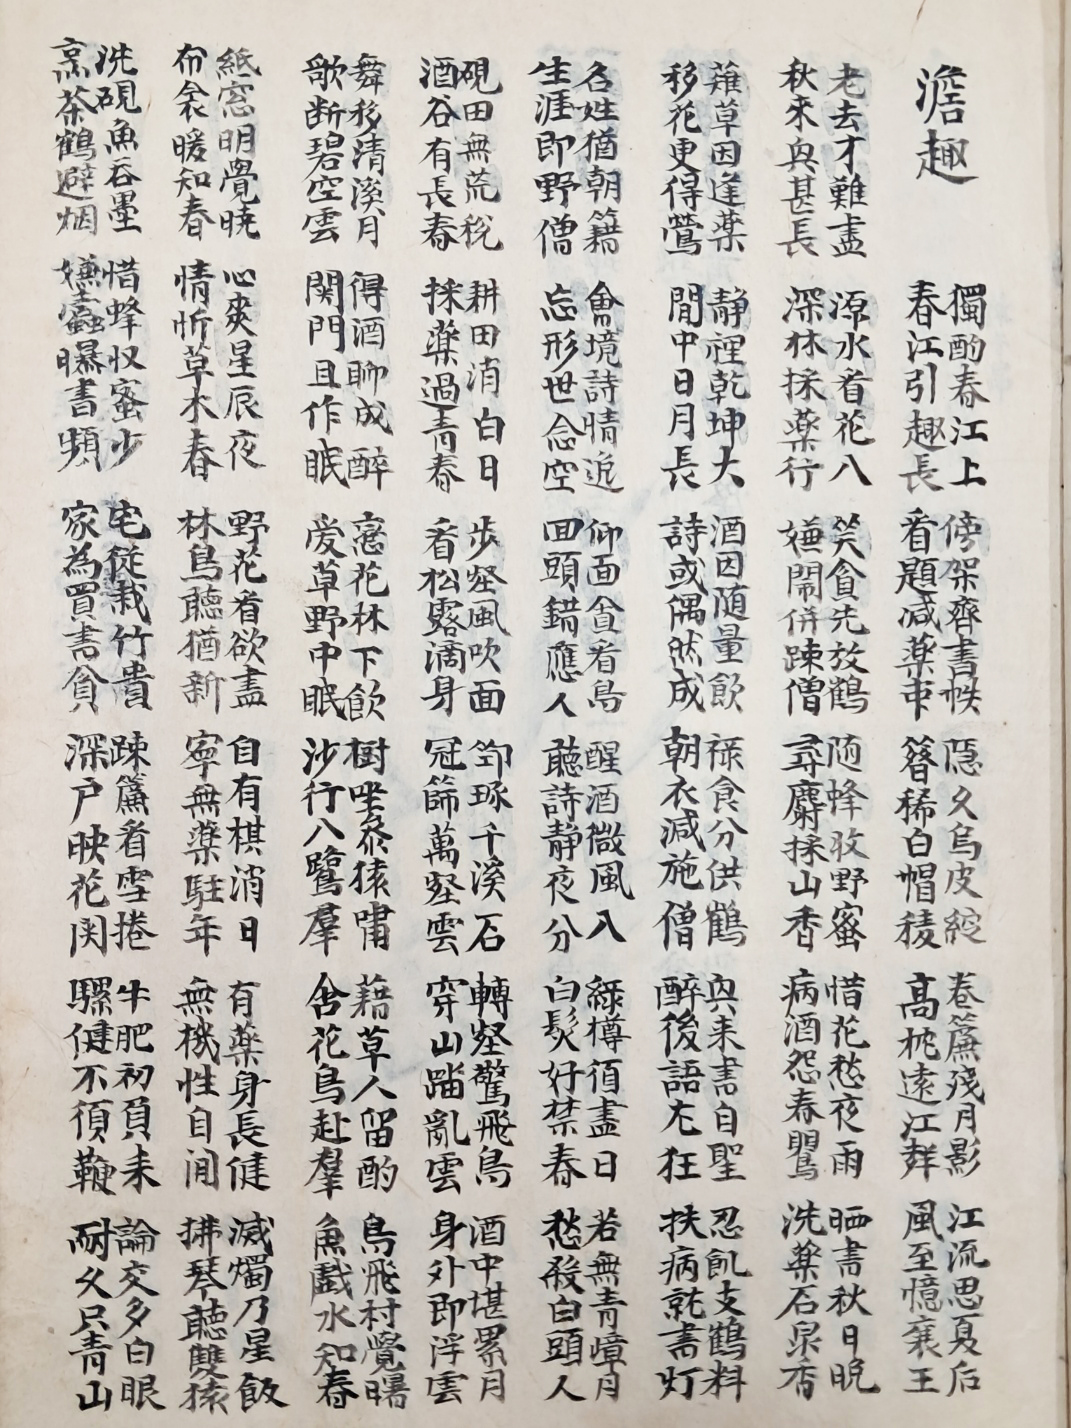 澹趣
獨酌春江上
春江引趣長
傍架齊書帙
看題減藥巿
隱久烏皮綻
簪稀白帽稜
卷簾殘月影
高枕遠江聲
江流思夏后
風至憶襄王
老去才難盡
秋來興甚長
源水看花入
深林採藥行
笑貪先放鶴
嫌鬧併踈僧
随蜂收野蜜
尋麝採山香
惜花愁夜雨
病酒怨春鸎
晒書秋日晩
洗藥石泉香
薙草因逢藥
移花更得鶯
靜裡乾坤大
閒中日月長
酒因随量飲
詩或偶然成
禄食分供鶴
朝衣減施僧
興来書自聖
醉後語尤狂
忍飢支鶴料
扶病就書灯
名姓猶朝籍
生涯即野僧
會境詩情逅
忘形世念空
仰面貪看鳥
回頭錯應人
醒酒微風入
聽詩靜夜分
綠樽湏盡日
白髮好禁春
若無青嶂月
愁殺白頭人
硯田無荒稅
酒谷有長春
耕田消白日
採藥過青春
歩壑風吹面
看松露滴身
筇琢千溪石
冠篩萬壑雲
轉壑驚飛鳥
穿山踏亂雲
酒中堪累月
身外即浮雲
舞移清溪月
歌断碧空雲
得酒聊成醉
関門且作眠
戀花林下飲
爱草野中眠
樹坐叅猿嘯
沙行入鷺羣
藉草人留酌
含花鳥赴羣
鳥飛村覺曙
魚戲水知春
紙窓明覺暁
布衾暖知春
心爽星辰夜
情忻草木春
野花看欲盡
林鳥聽猶新
自有棋消日
寧無藥駐年
有藥身長健
無機性自间
滅燭乃星飯
拂琴聽雙猿
洗硯魚吞墨
烹茶鶴避烟
惜蜂収蜜少
嫌蠹曝書頻
宅從栽竹貴
家為買書貧
踈簾看雪捲
深戸映花関
牛肥初負耒
騾健不湏鞭
論交多白眼
耐久只青山